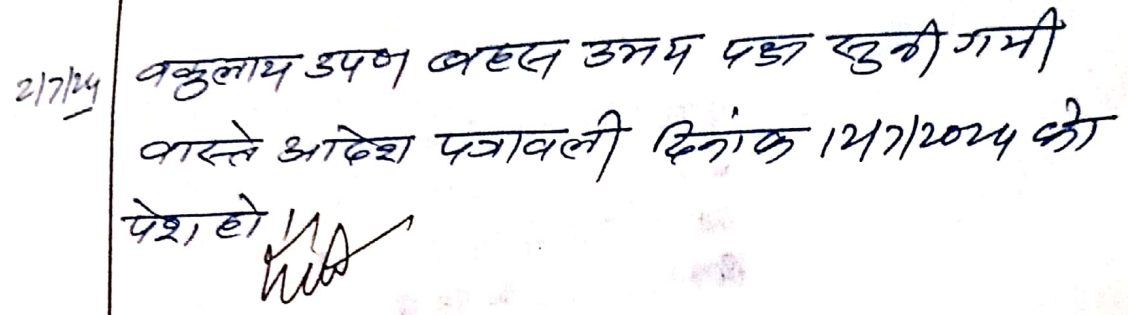 2/7/24 वकुलाय उपण बहस उभय पक्ष सुनी गयी
वास्ते आदेश पत्रावली दिनांक 12/7/2024 को
पेश हो।